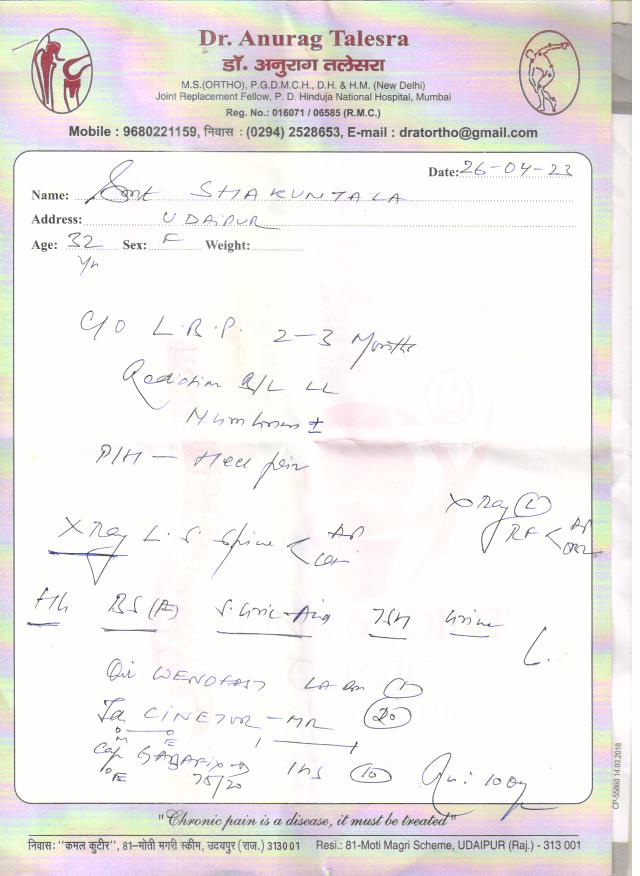 Dr. Anurag Talesra
डॉ. अनुराग तलेसरा
M.S.(ORTHO), P.G.D.M.C.H., D.H. & H.M. (New Delhi)
Joint Replacement Fellow, P. D. Hinduja National Hospital, Mumbai
Reg. No.: 016071 / 06585 (R.M.C.)
Mobile : 9680221159, निवास : (0294) 2528653, E-mail : dratortho@gmail.com
Date: 26-04-23
Name: Smt SHAKUNTALA
Address: UDAIPUR
Age: 32 Sex: F Weight:
Yr
C/O L.B.P. 2-3 Months
Radiation B/L LL
Numbness ±
P/H - Heel pain
X Ray (L)
RF < AP
X Ray L.S. Spine < AP
Hb BS(F) S. Uric-Acid TSH Urine
LA (1)
CINETOR-MR (20)
75/20 1HS (10)
"Chronic pain is a disease, it must be treated"
निवास: "कमल कुटीर", 81-मोती मगरी स्कीम, उदयपुर (राज.) 313001 Resi.: 81-Moti Magri Scheme, UDAIPUR (Raj.) - 313 001
CP-55860 14.03.2018